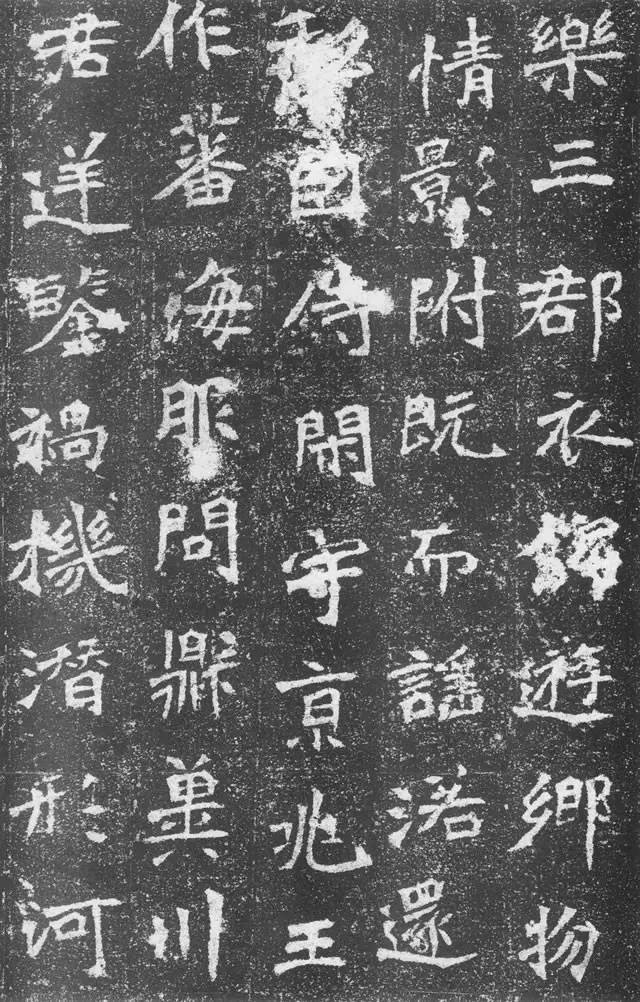 樂三郡衣錦遊鄉物
情影附既而謡還
侍閑守京兆王
作蕃海服問鼎冀川
君逆鑒禍機潛形河